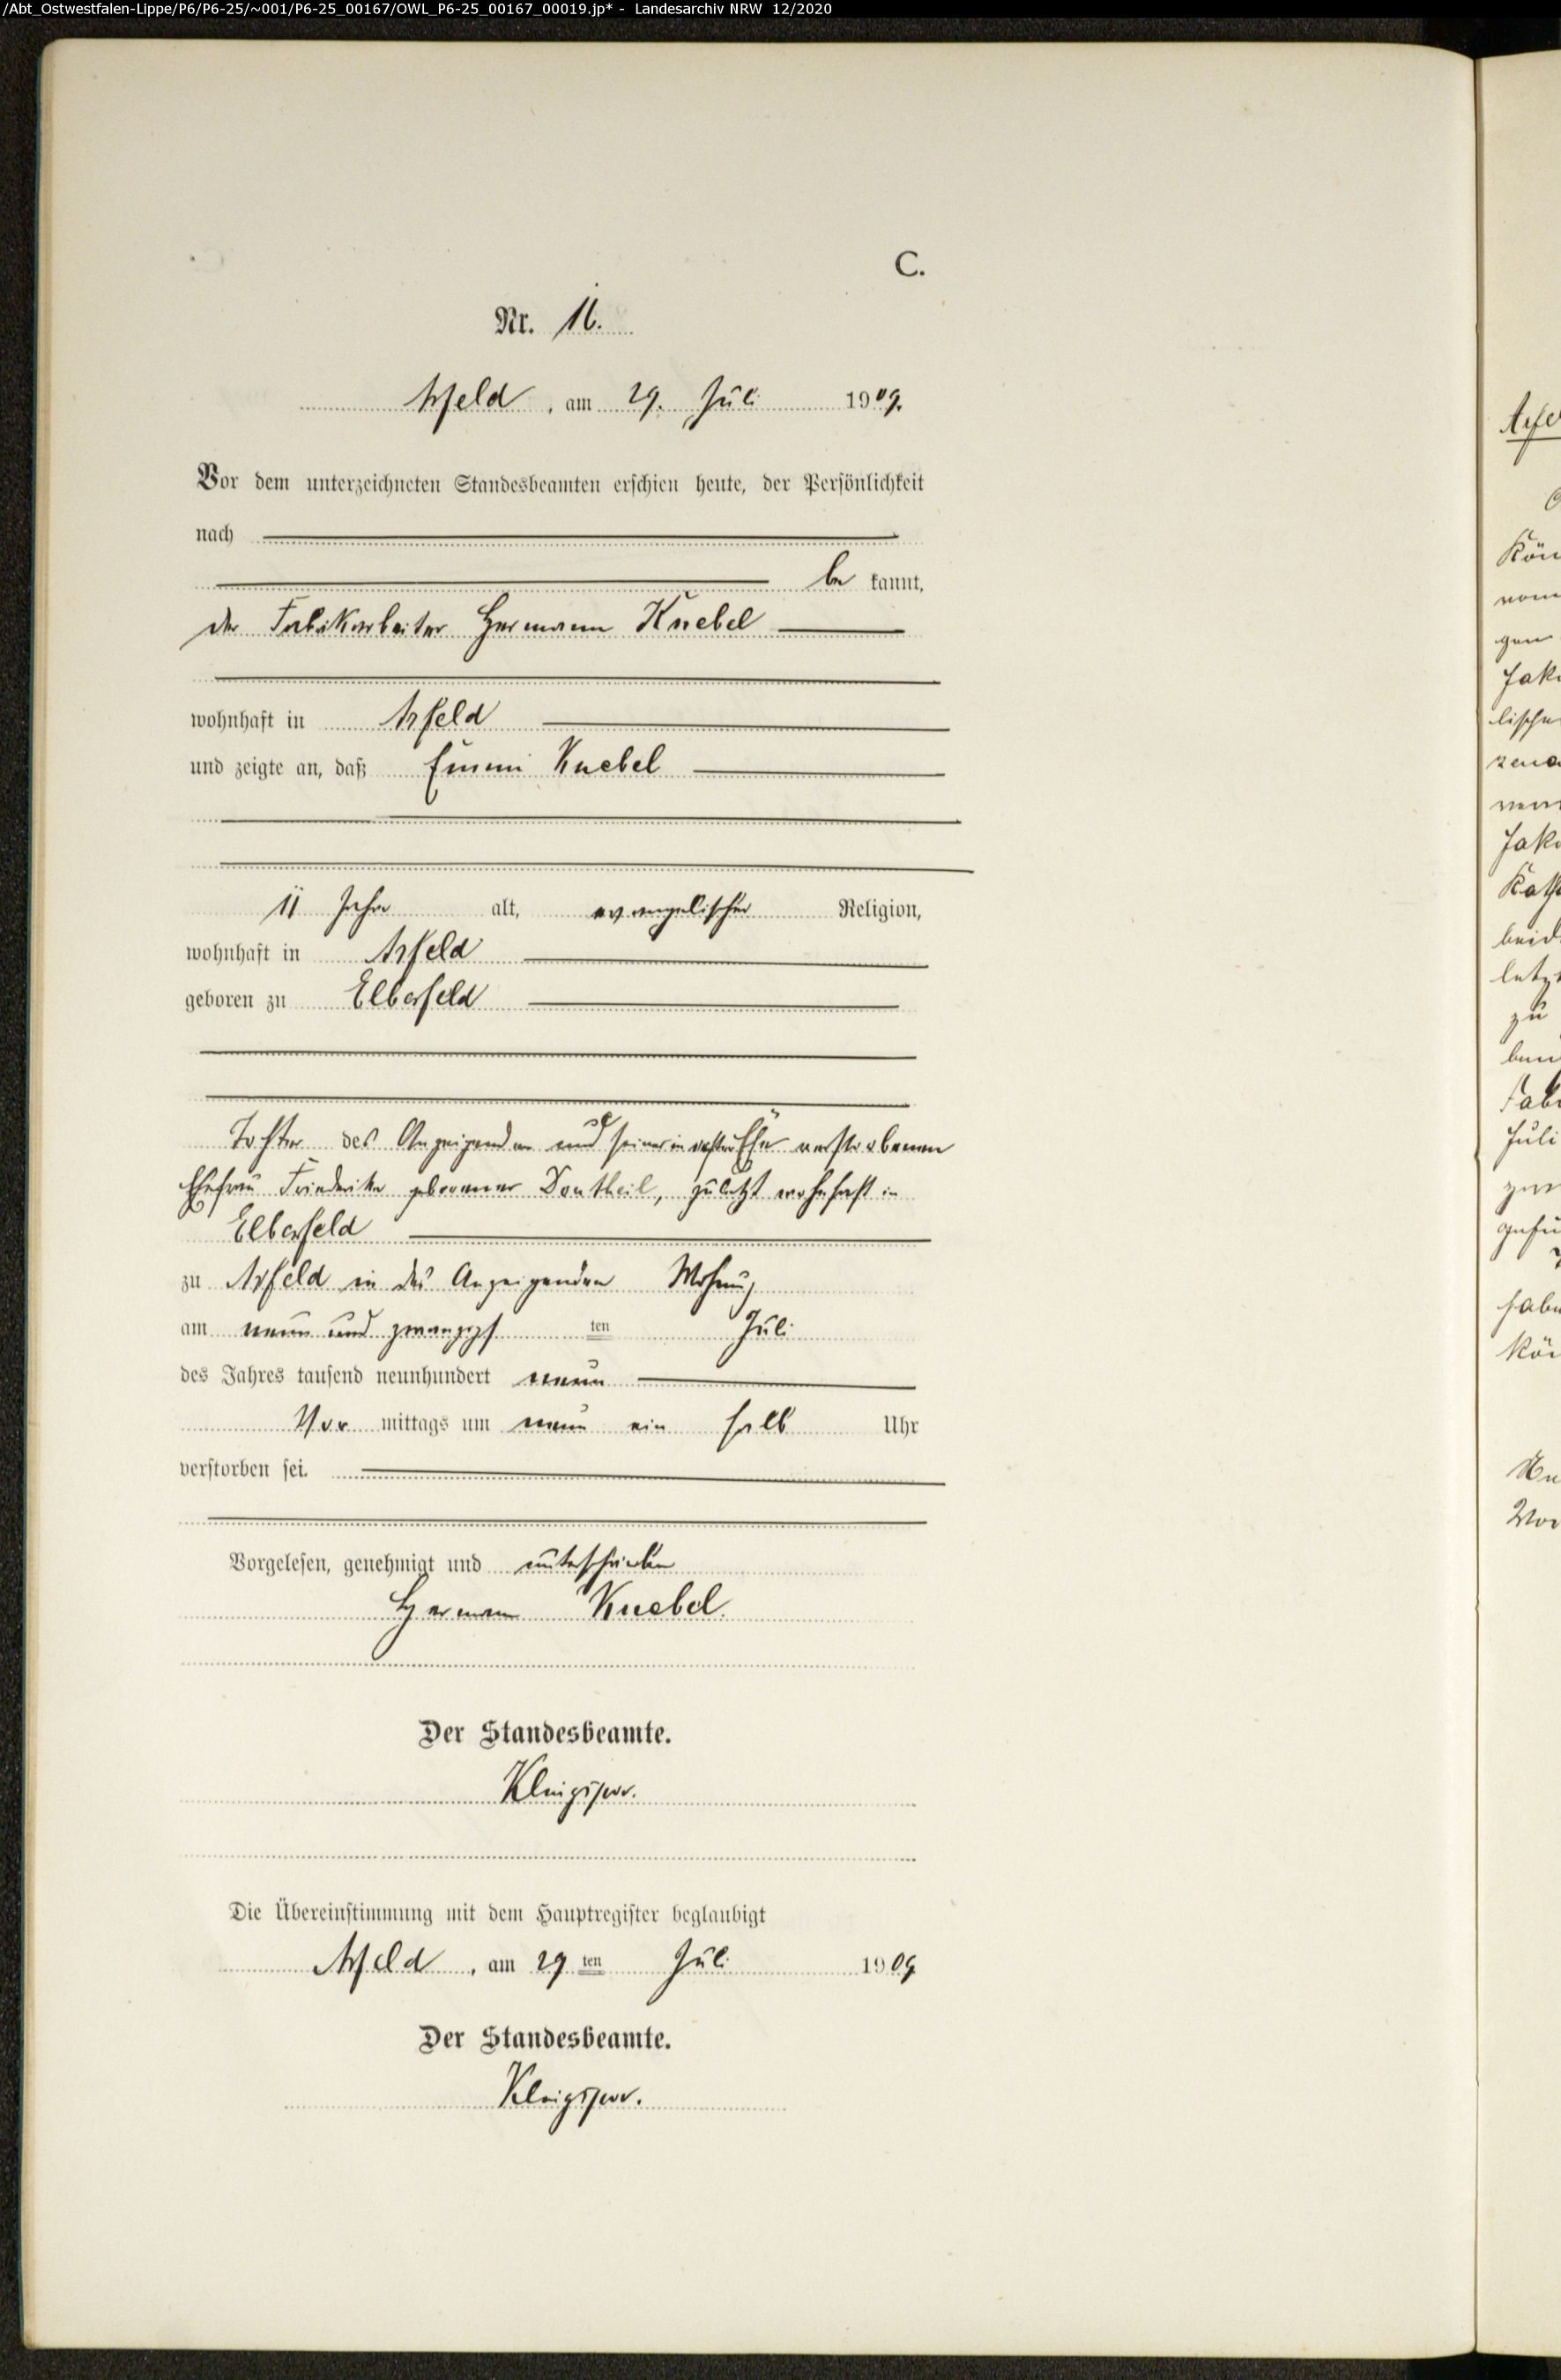 /Abt_Ostwestfalen-Lippe/P6/P6-25/~001/P6-25_00167/OWL_P6-25_00167_00019.jp* - Landesarchiv NRW 12/2020
C.
Nr. 16.
Arfeld, am 29. Juli 1909.
Vor dem unterzeichneten Standesbeamten erschien heute, der Persönlichkeit
nach
be kannt,
der Fabrikarbeiter Hermann Knebel
wohnhaft in Arfeld
und zeigte an, daß Emmi Knebel
11 Jahre alt, evangelischer Religion,
wohnhaft in Arfeld
geboren zu Elberfeld
Tochter des Anzeigenden und seiner in erster Ehe verstorbenen
Ehefrau Friederike geborener Dontheil, zuletzt wohnhaft in
Elberfeld
zu Arfeld in des Anzeigenden Wohnung
am neun und zwanzigs ten Juli
des Jahres tausend neunhundert neun
Vor mittags um neun ein halb Uhr
verstorben sei.
Vorgelesen, genehmigt und unterschrieben
Hermann Knebel.
Der Standesbeamte.
Die Übereinstimmung mit dem Hauptregister beglaubigt
Arfeld, am 29 ten Juli 1909
Der Standesbeamte.